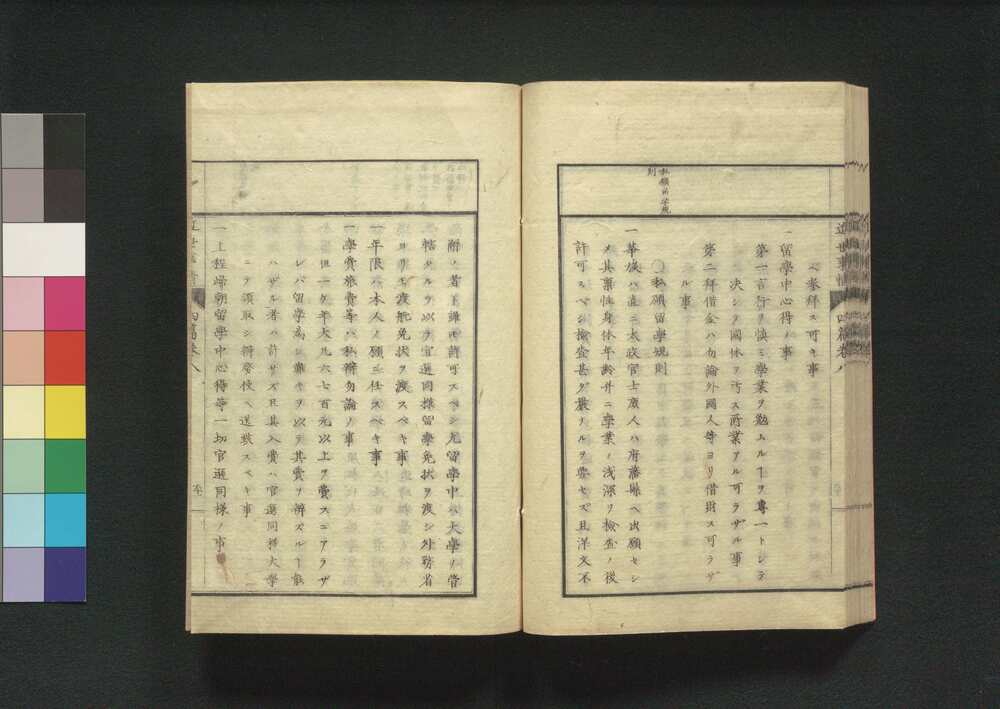 私願留學規
則
ベ拳拜ス可キ事
一留學中心得ノ事
第一言行ヲ愼ミ學業ヲ勉ムルヿヲ專一トシテ
決シテ國体ヲ汚ス所業アル可ラザル事
第二拜借金ハ勿論外國人等ヨリ借財ス可ラザ
ル事
〇私願留學規則
一華族ハ直ニ太政官士庶人ハ府藩縣ヘ出願セシ
メ其稟性身体年齢并ニ學業ノ浅深ヲ檢査ノ後
許可スベシ檢査甚ダ嚴ナルヲ要セズ且洋文不
附ノ者ト雖モ許可スベシ尤留學中ハ大學ノ管
轄タルヲ以テ官選同樣留學免状ヲ渡シ外務省
ヨリモ渡航免状ヲ渡スベキ事
一年限ハ本人ノ願ニ任スベキ事
一學費旅費等ハ私辨勿論ノ事
但一ケ年大凡六七百元以上ヲ費スニアラザ
レバ留學為シ難キヲ以テ其費ヲ辨ズルヿ能
ハザル者ハ許サズ且其入費ハ官選同樣大學
ニテ領取シ辨務使ヘ送致スベキ事
一上程歸朝留學中心得等一切官選同樣ノ事
近世事情
四篇卷八